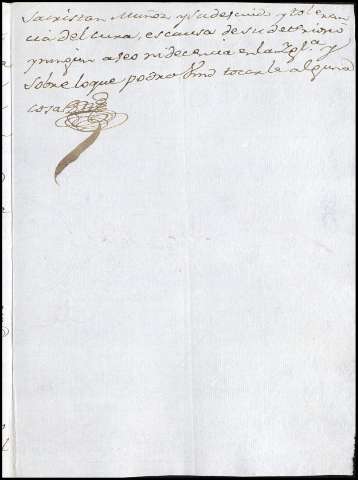 Sacristan Muñoz y su descuido y toleran
cia del Cura, es causa de su deterioro
y ningun aseo ni decencia en la Ygl.ª y
sobre lo que podra tocarle alguna
cosa